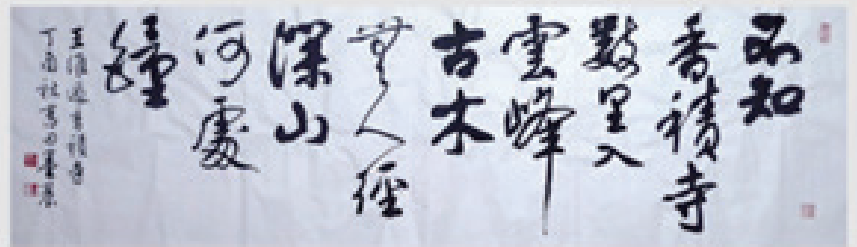 不知
香積寺
數里入
雲峰
古木
無人徑
深山
何處
鐘
王維過香積寺
丁酉